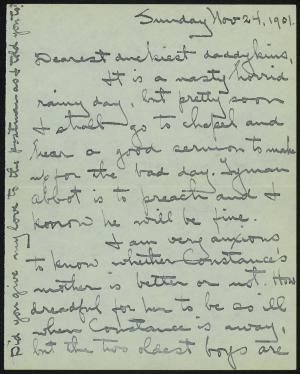 Sunday Nov 24, 1901.
Dearest duckiest daddykins,
It is a nasty horrid
rainy day, but pretty soon
I shall go to chapel and
hear a good sermon to make
up for the bad day. Lyman
Abbot is to preach and I
know he will be fine.
I am very anxious
to know whether Constance's
mother is better or not. How
dreadful for her to be so ill
when Constance is away,
but the two oldest boys are
Did you give my love to the postman as I told you to?